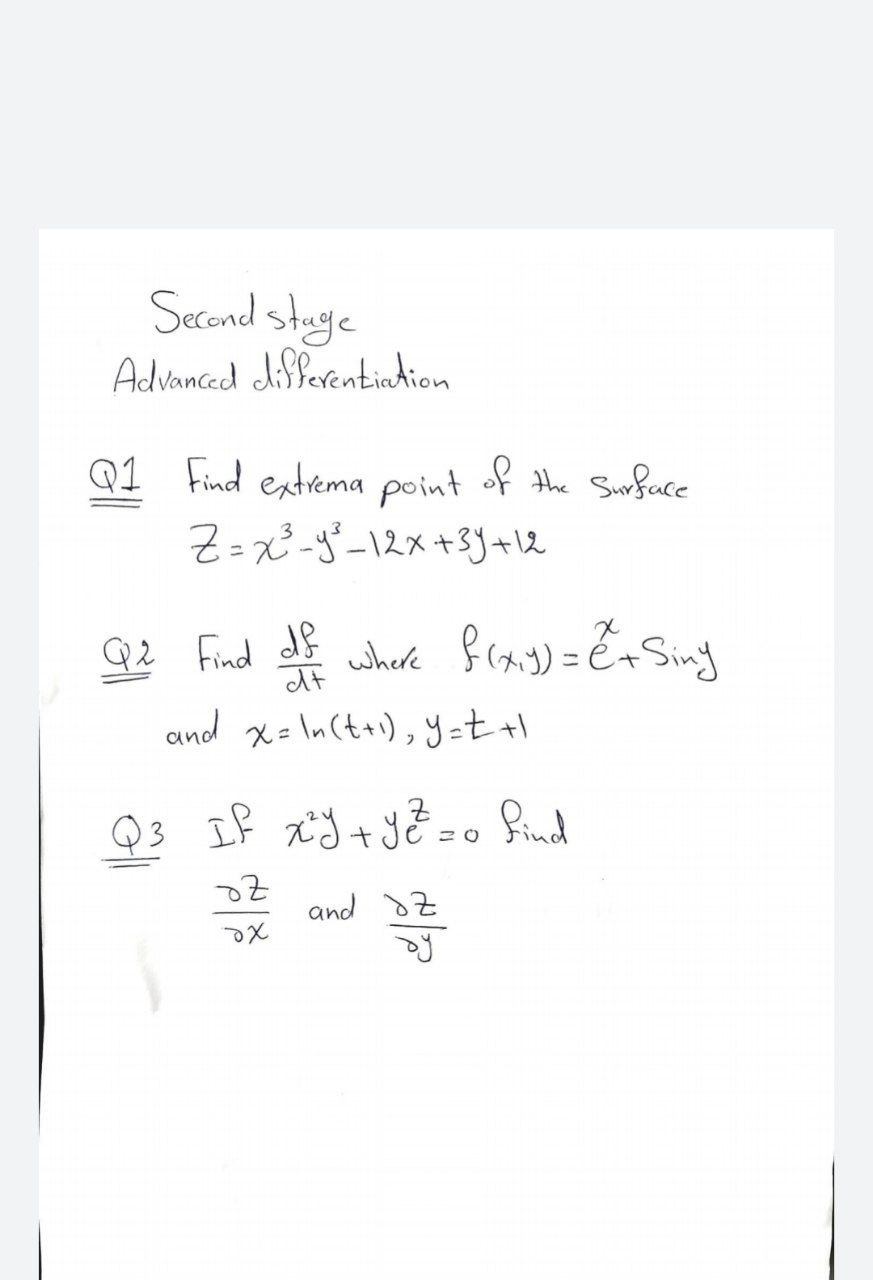 Second stage
Advanced differentiation
Q1 Find extrema point of the surface
Z = x³ - y³ - 12x + 3y + 12
Q2 Find df/dt where f(x,y) = eˣ + Siny
and x = ln(t+1), y = t + 1
Q3 If x²y + yeᶻ = 0 find
∂Z/∂x and ∂Z/∂y